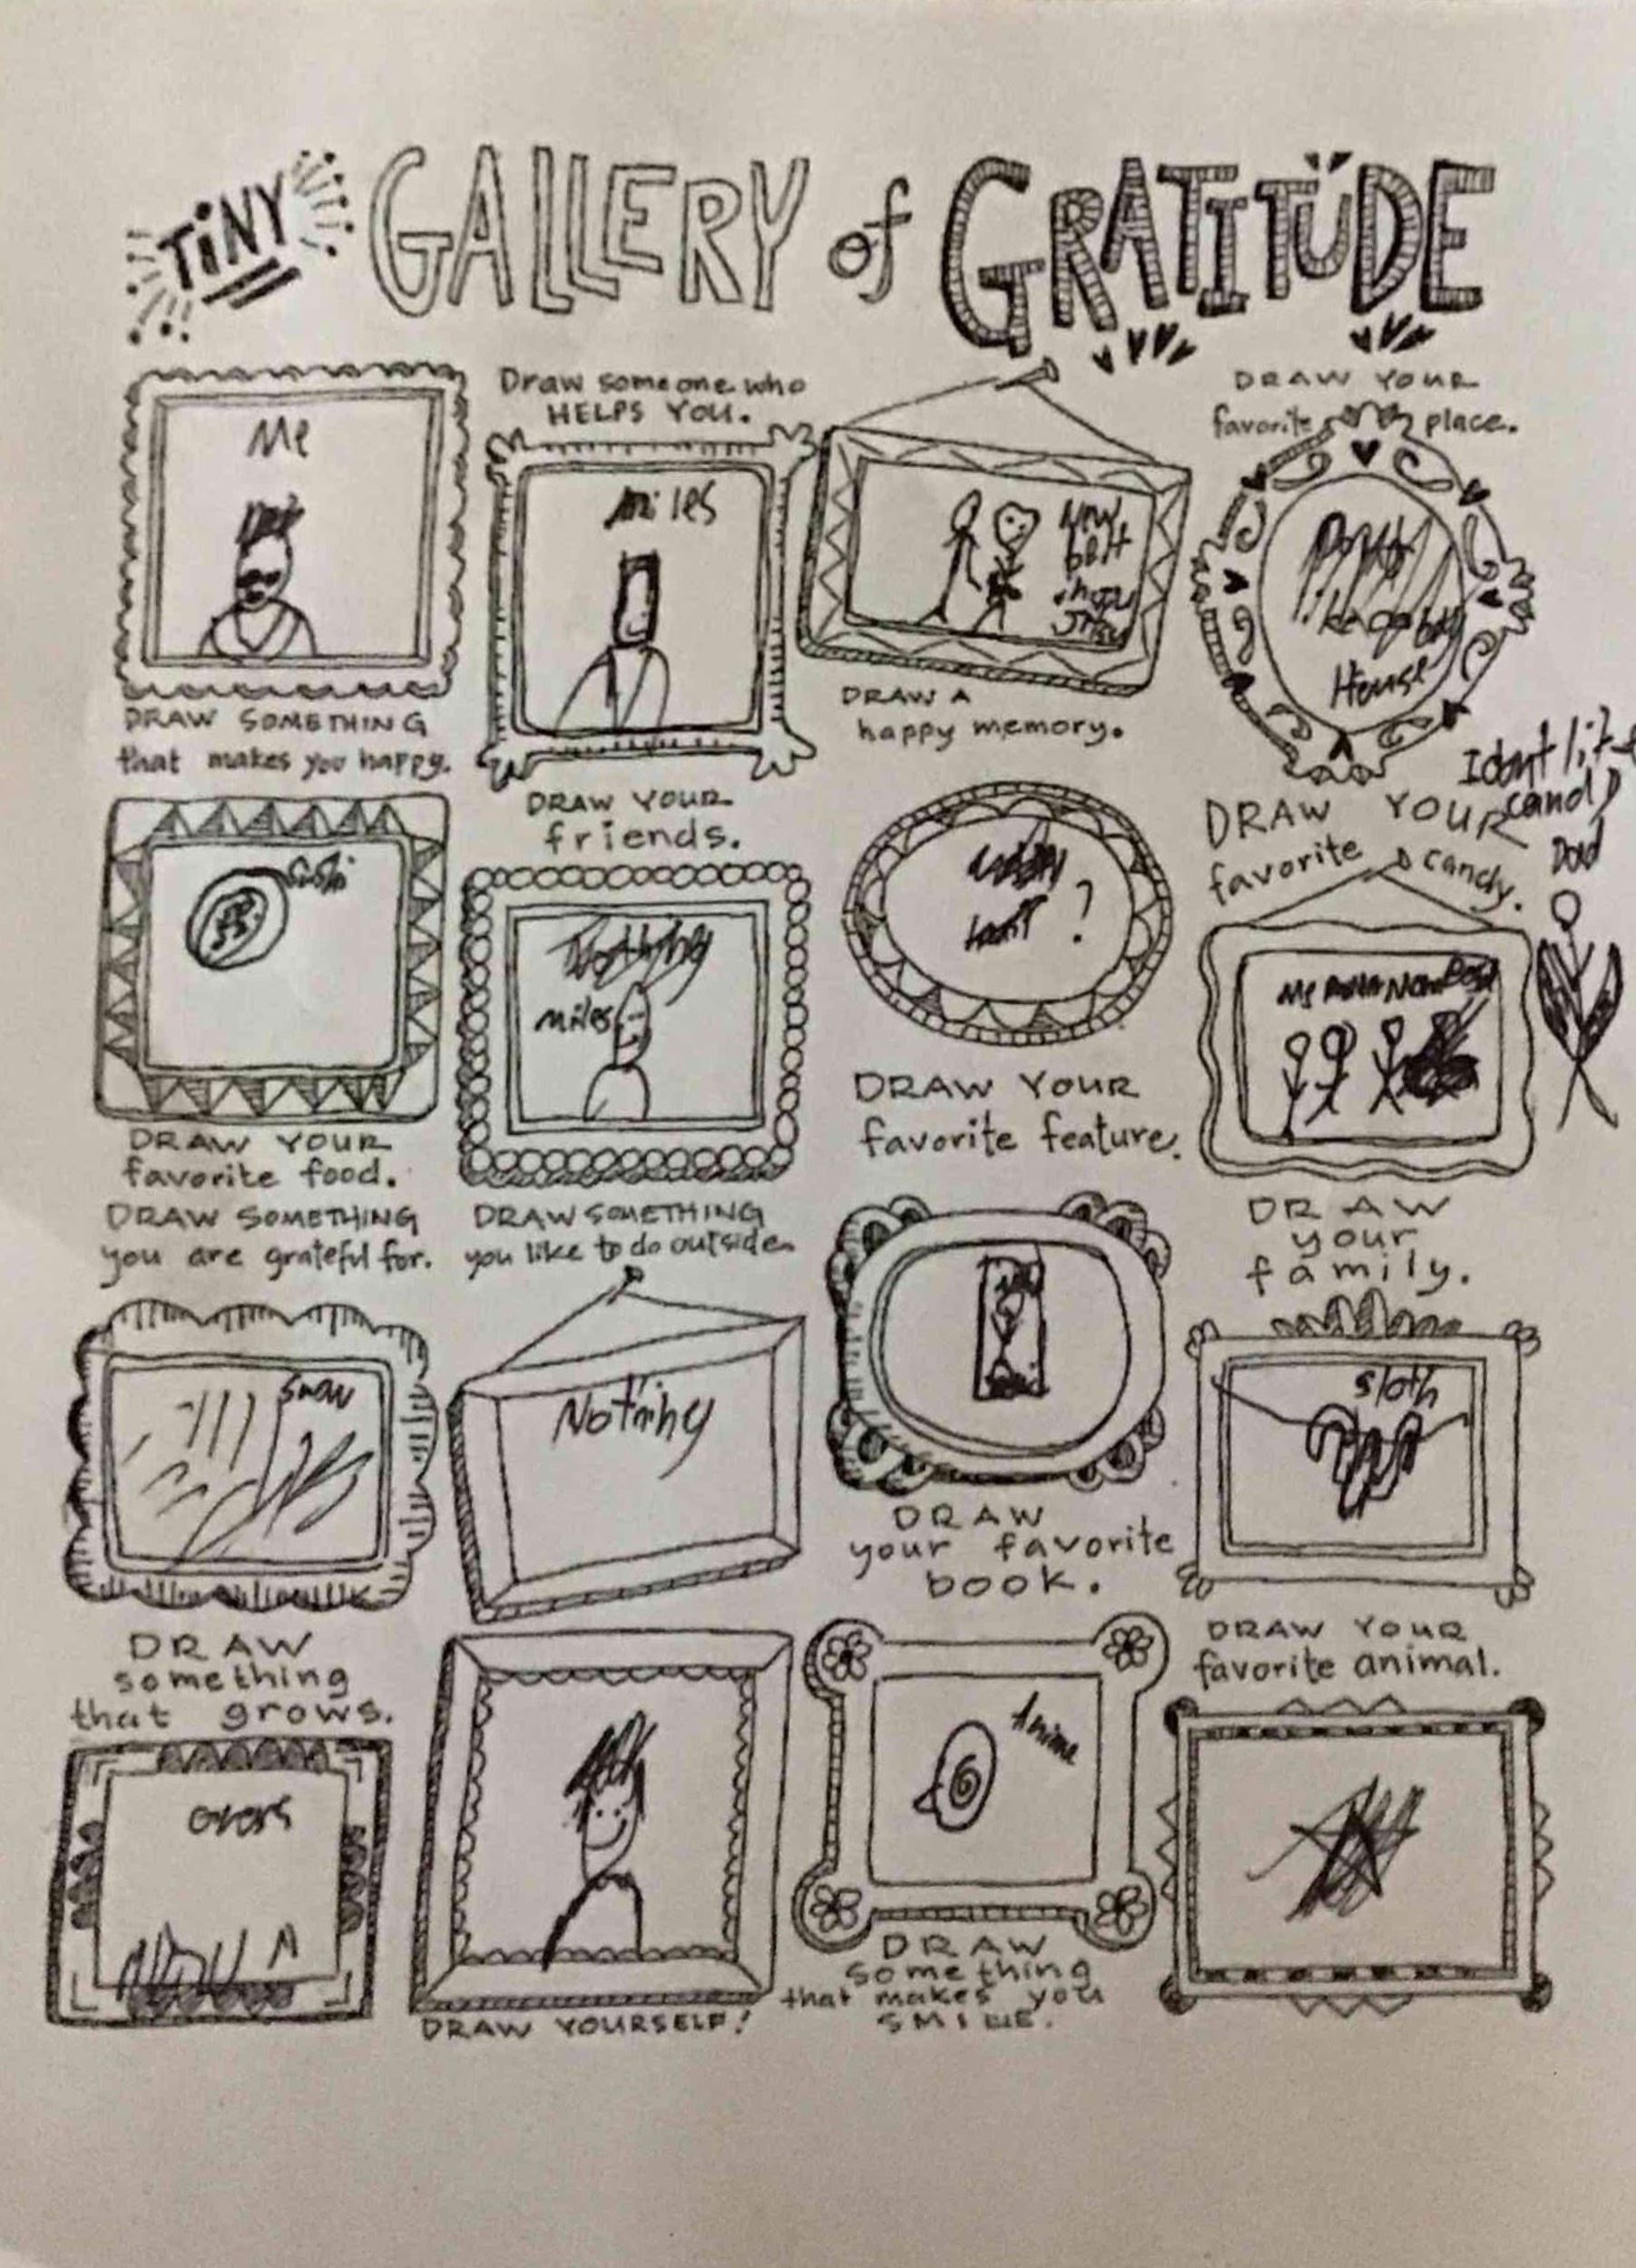 TINY GALLERY of GRATITUDE
Me
DRAW SOMETHING
that makes you happy.
Draw someone who
HELPS YOU.
Miles
New
belt
DRAW A
happy memory.
DRAW YOUR
favorite place.
House
DRAW YOUR
favorite food.
DRAW YOUR
friends.
Nothing
miles
?
DRAW YOUR
favorite feature.
I dont like
candy
Dad
DRAW YOUR
favorite candy.
Me
DRAW
your
family.
DRAW SOMETHING
you are grateful for.
DRAW SOMETHING
you like to do outside.
Nothing
DRAW
your favorite
book.
sloth
DRAW YOUR
favorite animal.
DRAW
something
that grows.
DRAW YOURSELF!
Anime
DRAW
something
that makes you
SMILE.